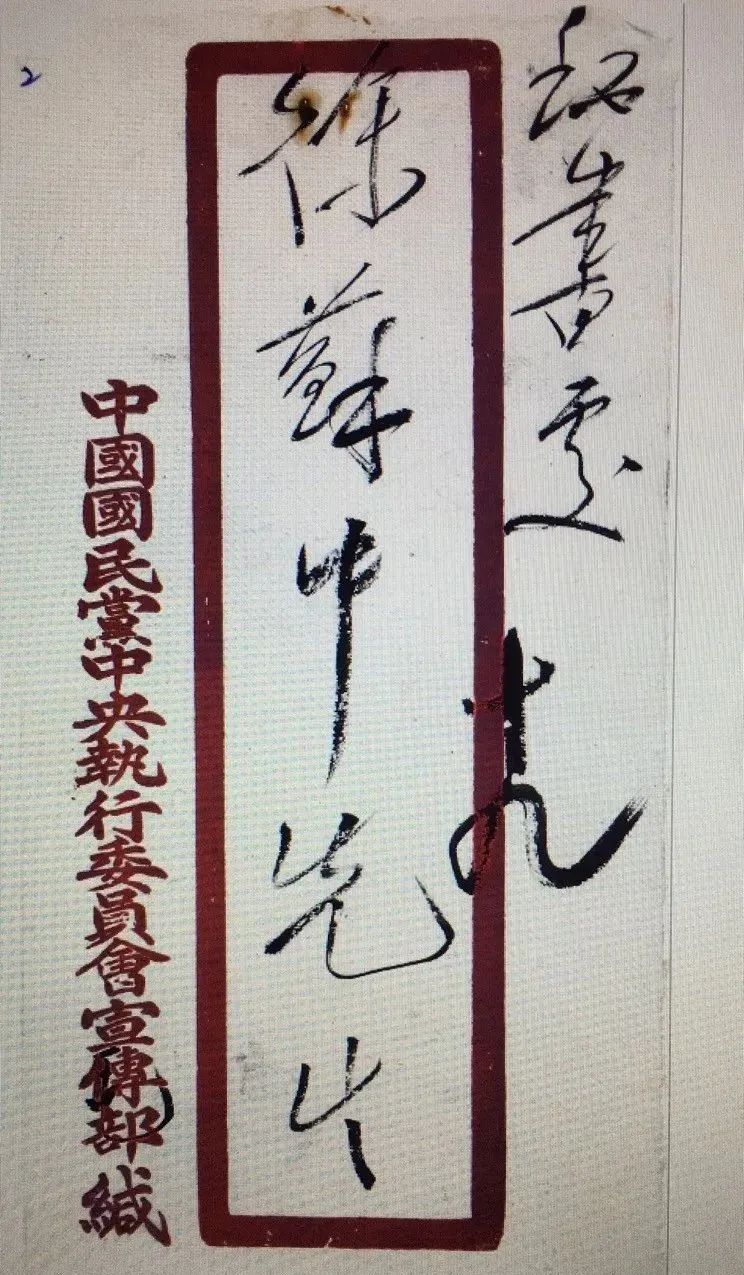 秘書處
徐蘇中先生
中國國民黨中央執行委員會宣傳部緘
2